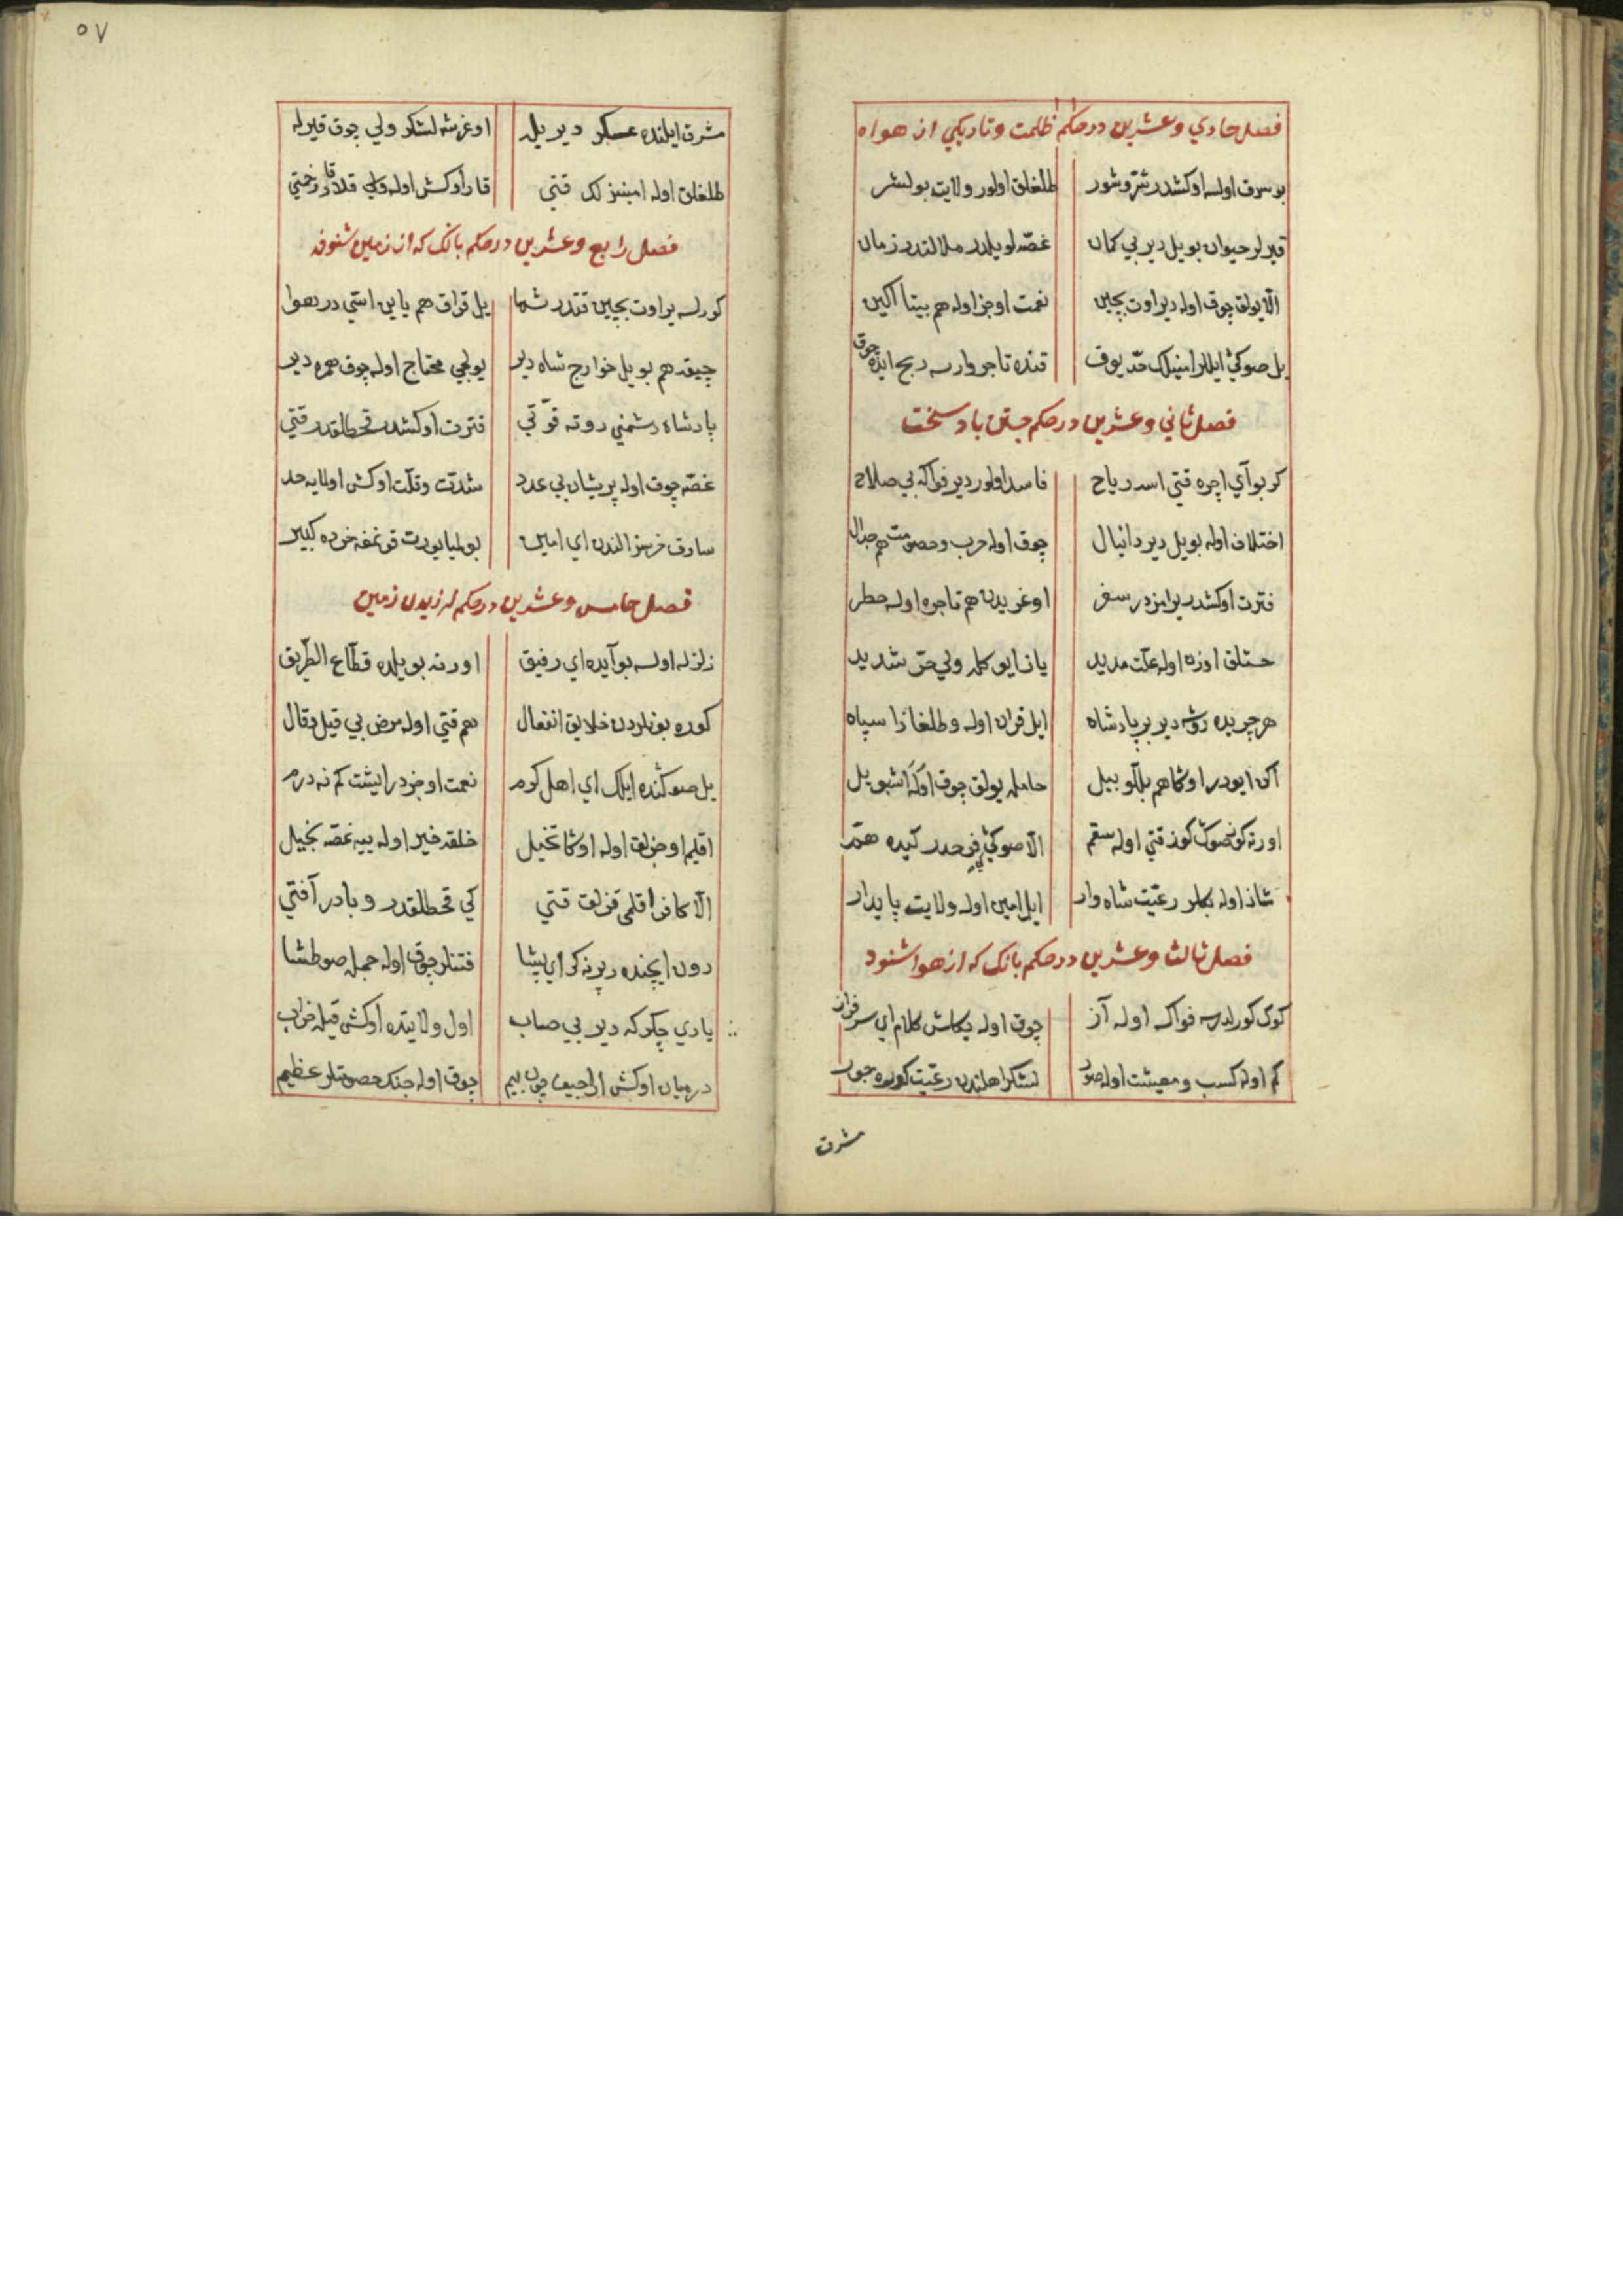 فصل حادي وعشرين درحكم ظلمت وتاريكي از هواه
بوسرق اولسه اوكشدر شرّوشور طلغلق اولور ولايت بولسر
قيرلر حيوان بو ييل دير بي كمان غصّه لو يلدر ملالتدر زمان
الّا يولق چوق اوله دير اوت بچين نعمت اوجز اوله هم بيتا اكين
يل صوكي ايللر امينلك قد يوق قنده تاجر وارسه ربح ايده چوق
فصل ثاني وعشرين درحكم جستن باد سخت
كر بو آي ايچره قتي اسه رياح فاسد اولور دير فواكه بي صلاح
اختلاف اوله بو ييل دير دانيال چوق اوله حرب وخصومت هم جدال
فترت اوكشدر يرامزدر سفر اوغريدن هم تاجره اوله خطر
خستلق اوزه اوله علّت مديد يازايو كله ولي حرّ شديد
هر چريده روشه دير بر پادشاه ايل قران اوله وطلغا ذا سپاه
اكن ايودر اوكا هم بللو بيل حامله يولق چوق اوله اشبو ييل
اورته كو صوك كوز قتي اوله سقم الّا صوكي فرحدر كيده همّ
شاذ اوله بكلر رعيّت شاه وار ايل امين اوله ولايت پايدار
فصل ثالث وعشرين درحكم بانك كه از هوا شنود
كوك كورلدسه فواكه اوله آز چوق اوله يكاش كلام اي سرفراز
كم اوله كسب ومعيشت اوله صور لشكر اهلندن رعيّت كوره جور
مشرق
٥٧
مشرق ايلنده عسكر دير يل اوغرشه لشكر ولي چوق قيرله
طلغلق اوله امينسزلك قتي قار اوكش اوله ولي
فصل رابع وعشرين درحكم بانك كه از زمين شنود
كورلسه ير اوت بچين قتدر شها يل قراق هم ياين استي در هوا
چيقه هم بو ييل خوارج شاه دير يولجي محتاج اوله چوق همره دير
پادشاه دشمني دوته قوّتي فترت اوكشدر قحطلقدر قتي
غصّه چوق اوله پريشان بي عدد شدّت وقلّت اوكش اولايه حد
سارق خرسز الندن اي امير بولميا يورت قونمغه خرده كبير
فصل خامس وعشرين درحكم لرزيدن زمين
زلزله اولسه بو آيده اي رفيق اورته بو ييلده قطّاع الطريق
كوره بونلردن خلايق انفعال هم قتي اوله مرض بي قيل وقال
يل صوكنده ايلك اي اهل كرم نعمت اوجزدر ايشت كم نه درم
اقليم اوجزلق اوله اوكا تخيل خلقه خير اوله ييه غصّه بخيل
الّا كافر اقلمي قزلق قتي كي قحطلقدر وبادر آفتي
دون ايچنده دپرنه كر اي پيشا فتنلر چوق اوله جمله صوطشا
يادي چكركه دير بي حساب اول ولايتده اوكش قيله خراب
درميان اوكش اراجيف چون بيم چوق اوله جنك خصومتلر عظيم